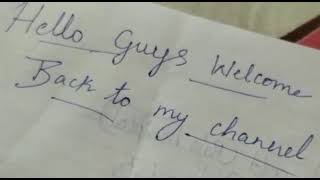 Hello Guys Welcome
Back to my channel